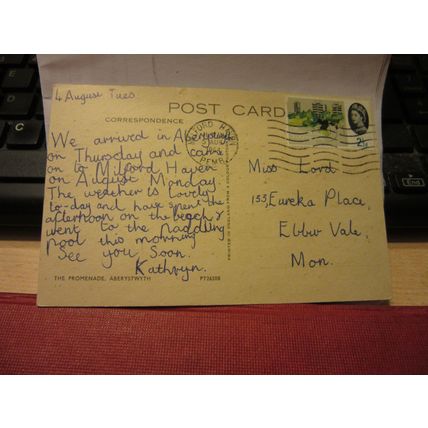 4 August Tues
POST CARD
CORRESPONDENCE
We arrived in Aberystwyth
on Thursday and came
on to Milford Haven
on August Monday.
The weather is lovely
to-day and have spent the
afternoon on the beach &
went to the paddling
pool this morning
See you Soon.
Kathryn.
THE PROMENADE, ABERYSTWYTH
PT26308
PRINTED IN ENGLAND FROM A
MILFORD HAVEN
PEMB
2½
Miss Lord
153, Eureka Place,
Ebbw Vale.
Mon.
End